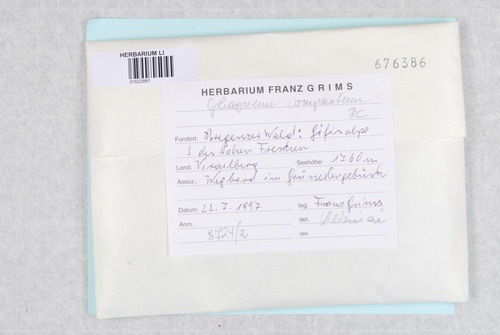 HERBARIUM LI
676386
HERBARIUM FRANZ GRIMS
compactum
Fundort: Bregenzer Wald:
S des Hohen Freschen
Land: Vorarlberg Seehöhe: 1760 m
Assoz.: im Grünerlengebüsch
Datum: 22.7.1997 leg. Franz Grims
Anm.: det.
8724/2 rev.